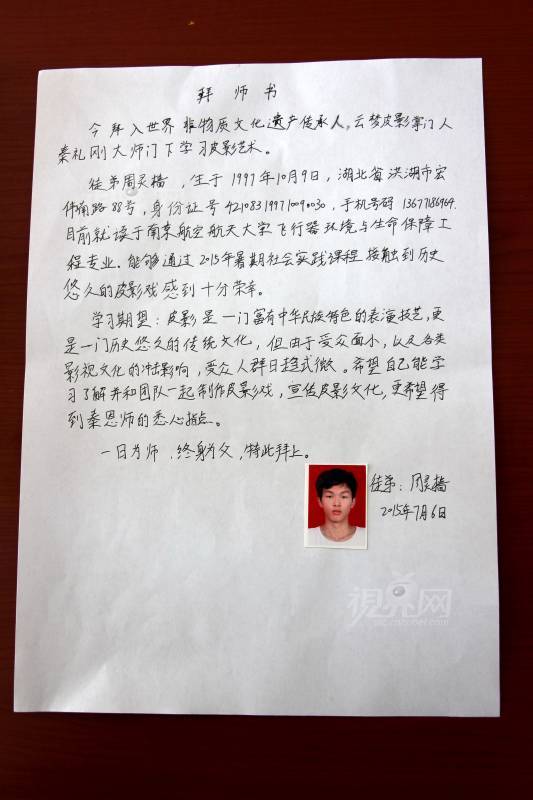 拜师书
今拜入世界非物质文化遗产传承人,云梦皮影掌门人
秦礼刚大师门下学习皮影艺术。
徒弟周灵樯,生于1997年10月9日,湖北省洪湖市宏
伟南路88号,身份证号421083199710090030,手机号码13677186964.
目前就读于南京航空航天大学飞行器环境与生命保障工
程专业。能够通过2015年暑期社会实践课程接触到历史
悠久的皮影戏感到十分荣幸。
学习期望:皮影是一门富有中华民族特色的表演技艺,更
是一门历史悠久的传统文化,但由于受众面小,以及各类
影视文化的冲击影响,受众人群日趋式微。希望自己能学
习了解并和团队一起制作皮影戏,宣传皮影文化,更希望得
到秦恩师的悉心指点。
一日为师,终身为父,特此拜上。
徒弟:周灵樯
2015年7月6日
視界网
pic.cnhubei.com